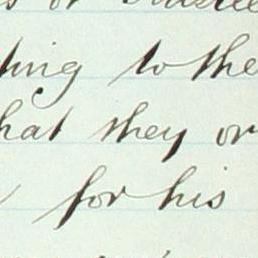 or
to the
that they or
for his